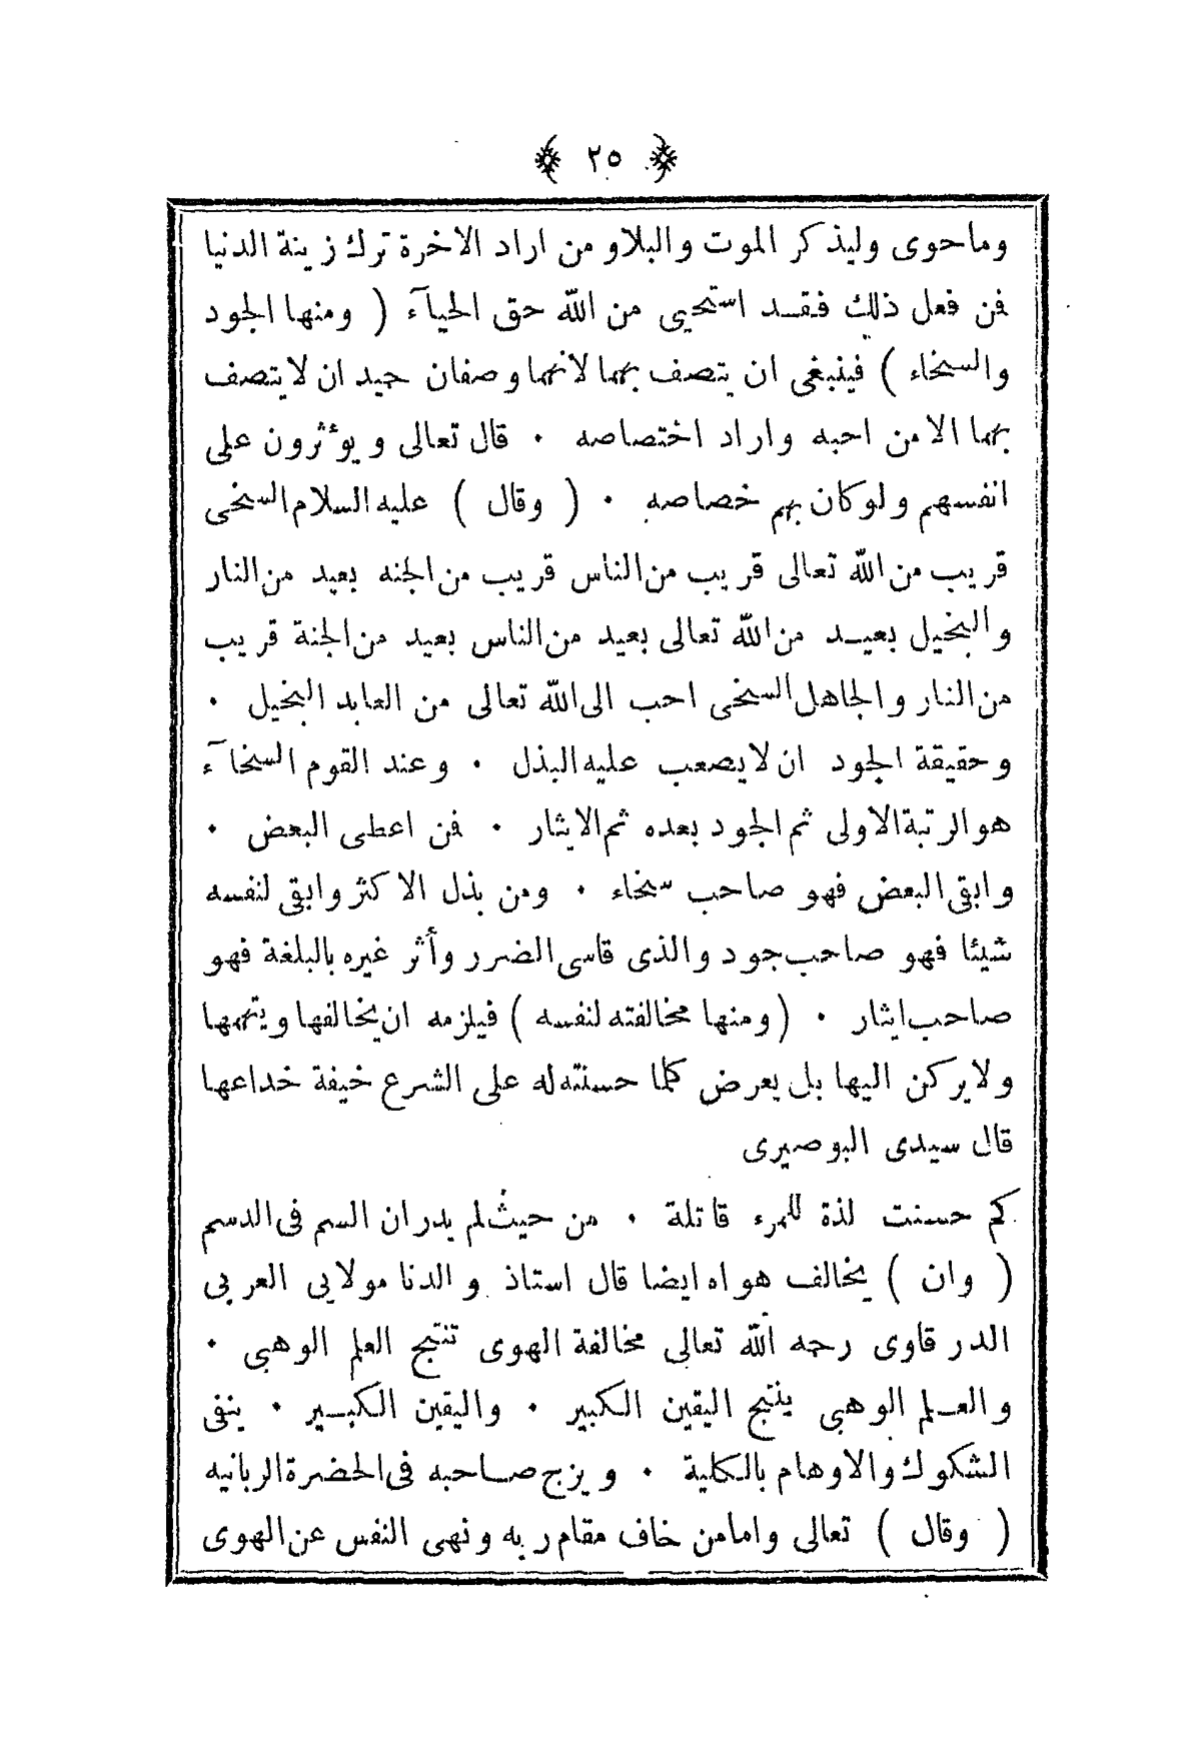 ﴿ ٢٥ ﴾
وماحوى وليذكر الموت والبلاو من اراد الاخرة ترك زينة الدنيا
فمن فعل ذلك فقد استحيى من الله حق الحيآء ( ومنها الجود
والسخاء ) فينبغى ان يتصف بهما لانهما وصفان حيد ان لايتصف
بهما الا من احبه واراد اختصاصه ٠ قال تعالى ويوءثرون على
انفسهم ولوكان بهم خصاصه ٠ ( وقال ) عليه السلام السخى
قريب من الله تعالى قريب من الناس قريب من الجنه بعيد من النار
والبخيل بعيد من الله تعالى بعيد من الناس بعيد من الجنة قريب
من النار والجاهل السخى احب الى الله تعالى من العابد البخيل ٠
وحقيقة الجود ان لايصعب عليه البذل ٠ وعند القوم السخآء
هو الرتبة الاولى ثم الجود بعده ثم الايثار ٠ فمن اعطى البعض ٠
وابقى البعض فهو صاحب سخاء ٠ ومن بذل الاكثر وابقى لنفسه
شيئا فهو صاحب جود والذى قاسى الضرر وأثر غيره بالبلغة فهو
صاحب ايثار ٠ ( ومنها مخالفته لنفسه ) فيلزمه ان يخالفها ويتهمها
ولايركن اليها بل يعرض كلما حسنته له على الشرع خيفة خداعها
قال سيدى البوصيرى
كم حسنت لذة للمرء قاتلة ٠ من حيث لم يدر ان السم فى الدسم
( وان ) يخالف هواه ايضا قال استاذ والدنا مولابى العربى
الدرقاوى رحمه الله تعالى مخالفة الهوى تنتج العلم الوهبى ٠
والعلم الوهبى ينتج اليقين الكبير ٠ واليقين الكبير ٠ ينفى
الشكوك والاوهام بالكلية ٠ ويزج صاحبه فى الحضرة الربانيه
( وقال ) تعالى وامامن خاف مقام ربه ونهى النفس عن الهوى